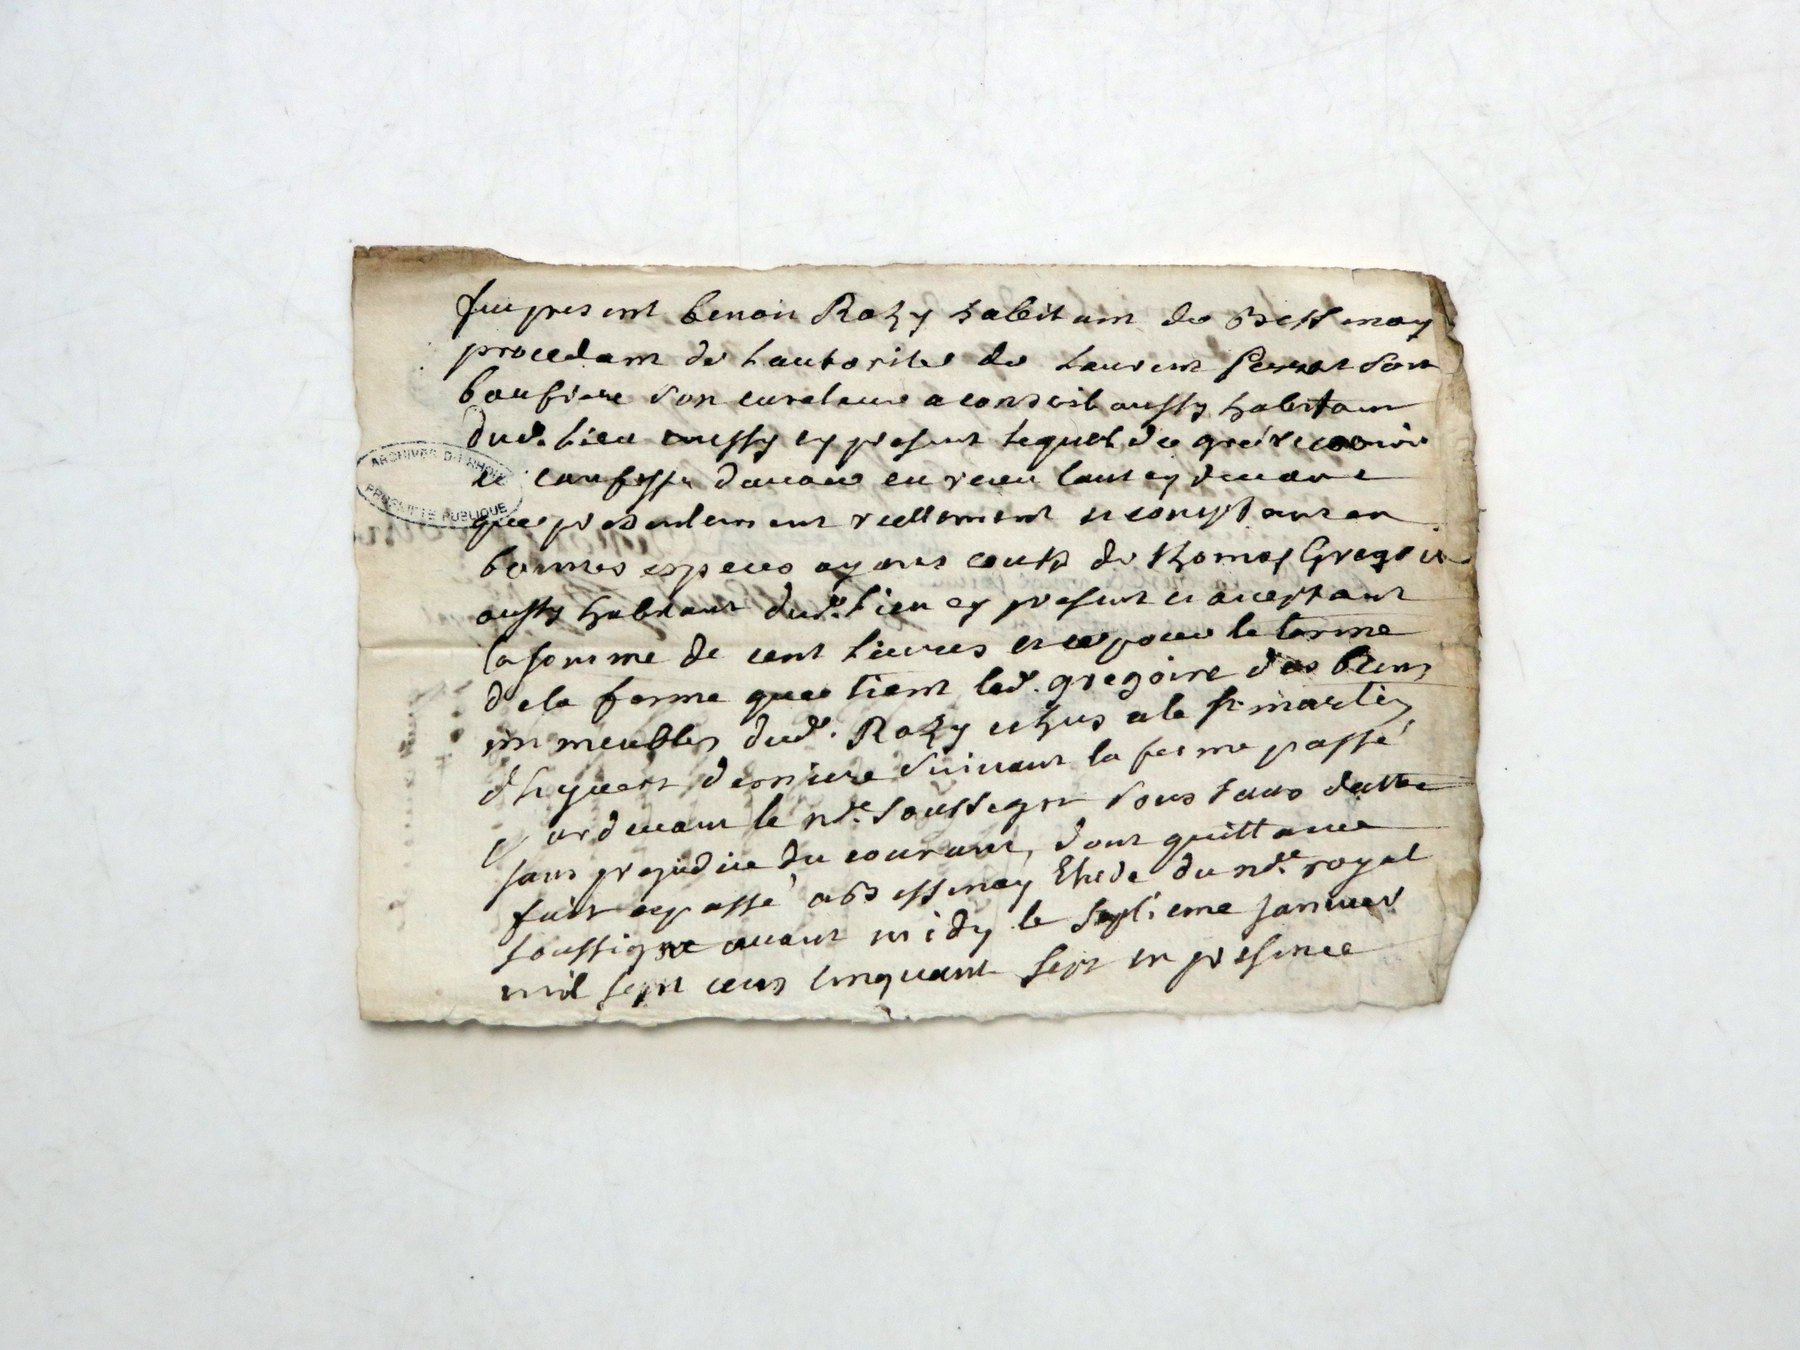 fut present benoit Rozy habitant de Bessenay
procedant de lautorité de Laurent Perrot son
beaufrere son curateur a conseil aussy habitant
dud. lieu aussy cy present lequel de gré reconnoit
et confesse davoir eu reçeu tant cy devant
que presentement reellement et comptant en
bonnes especes ayant cours de thomas Gregoire
aussy habitant dud. lieu cy present et acceptant
la somme de cent livres et ce pour le terme
de la ferme que tient led. gregoire des biens
immeubles dud. Rozy echus a la st martin
dhyvert derniere suivant la ferme passé
pardevant le nre. soussigné sous sa datte
sans prejudice du courant, dont quittance
fait et passé a Bessenay Etude du nre. royal
soussigné avant midy le septieme janvier
mil sept cens cinquant sept en presence
ARCHIVES DU RHONE
PROPRIETE PUBLIQUE